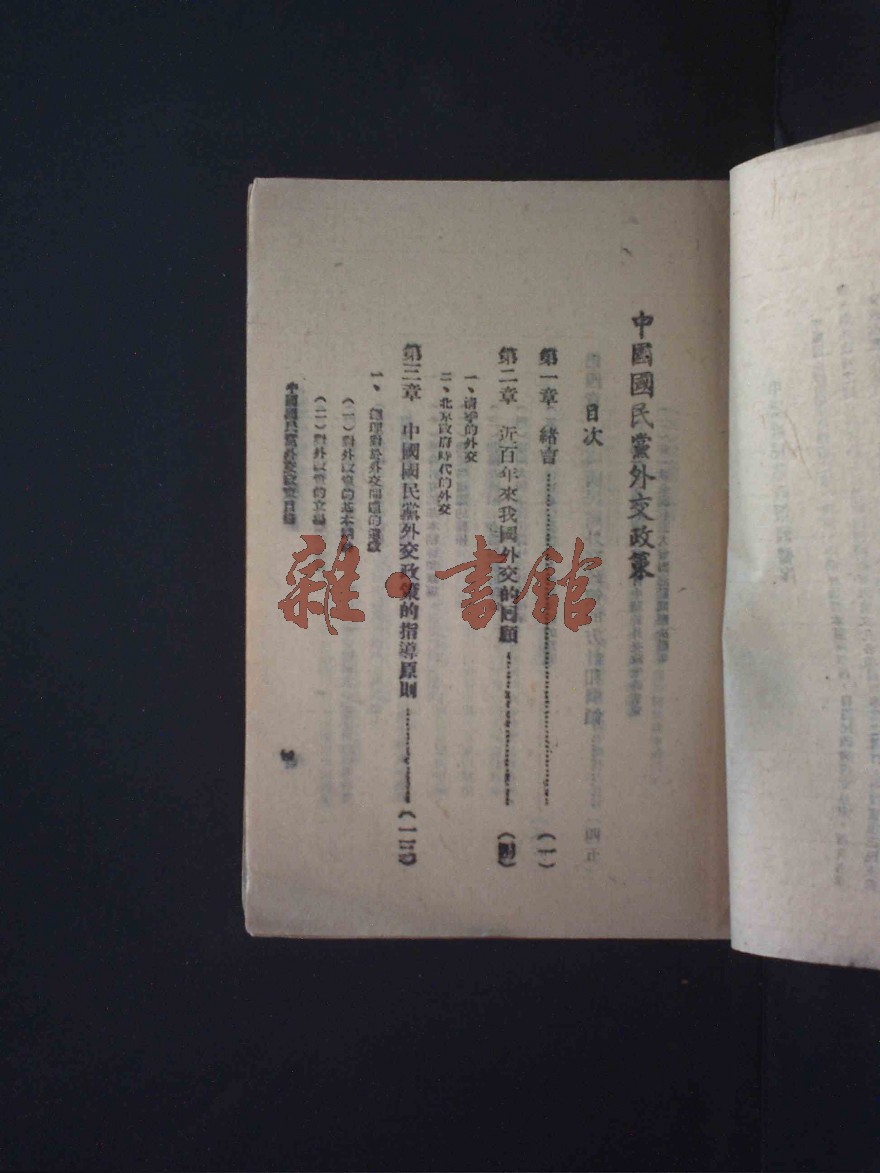 中國國民黨外交政策
目次
第一章 緒言……(一)
第二章 近百年來我國外交的回顧……
一、清季的外交
二、北京政府時代的外交
第三章 中國國民黨外交政策的指導原則……(一三)
一、總理對於外交問題的遺教
(一)對外政策的基本
(二)對外政策的立場
中國國民黨外交政策目錄
雜·書館